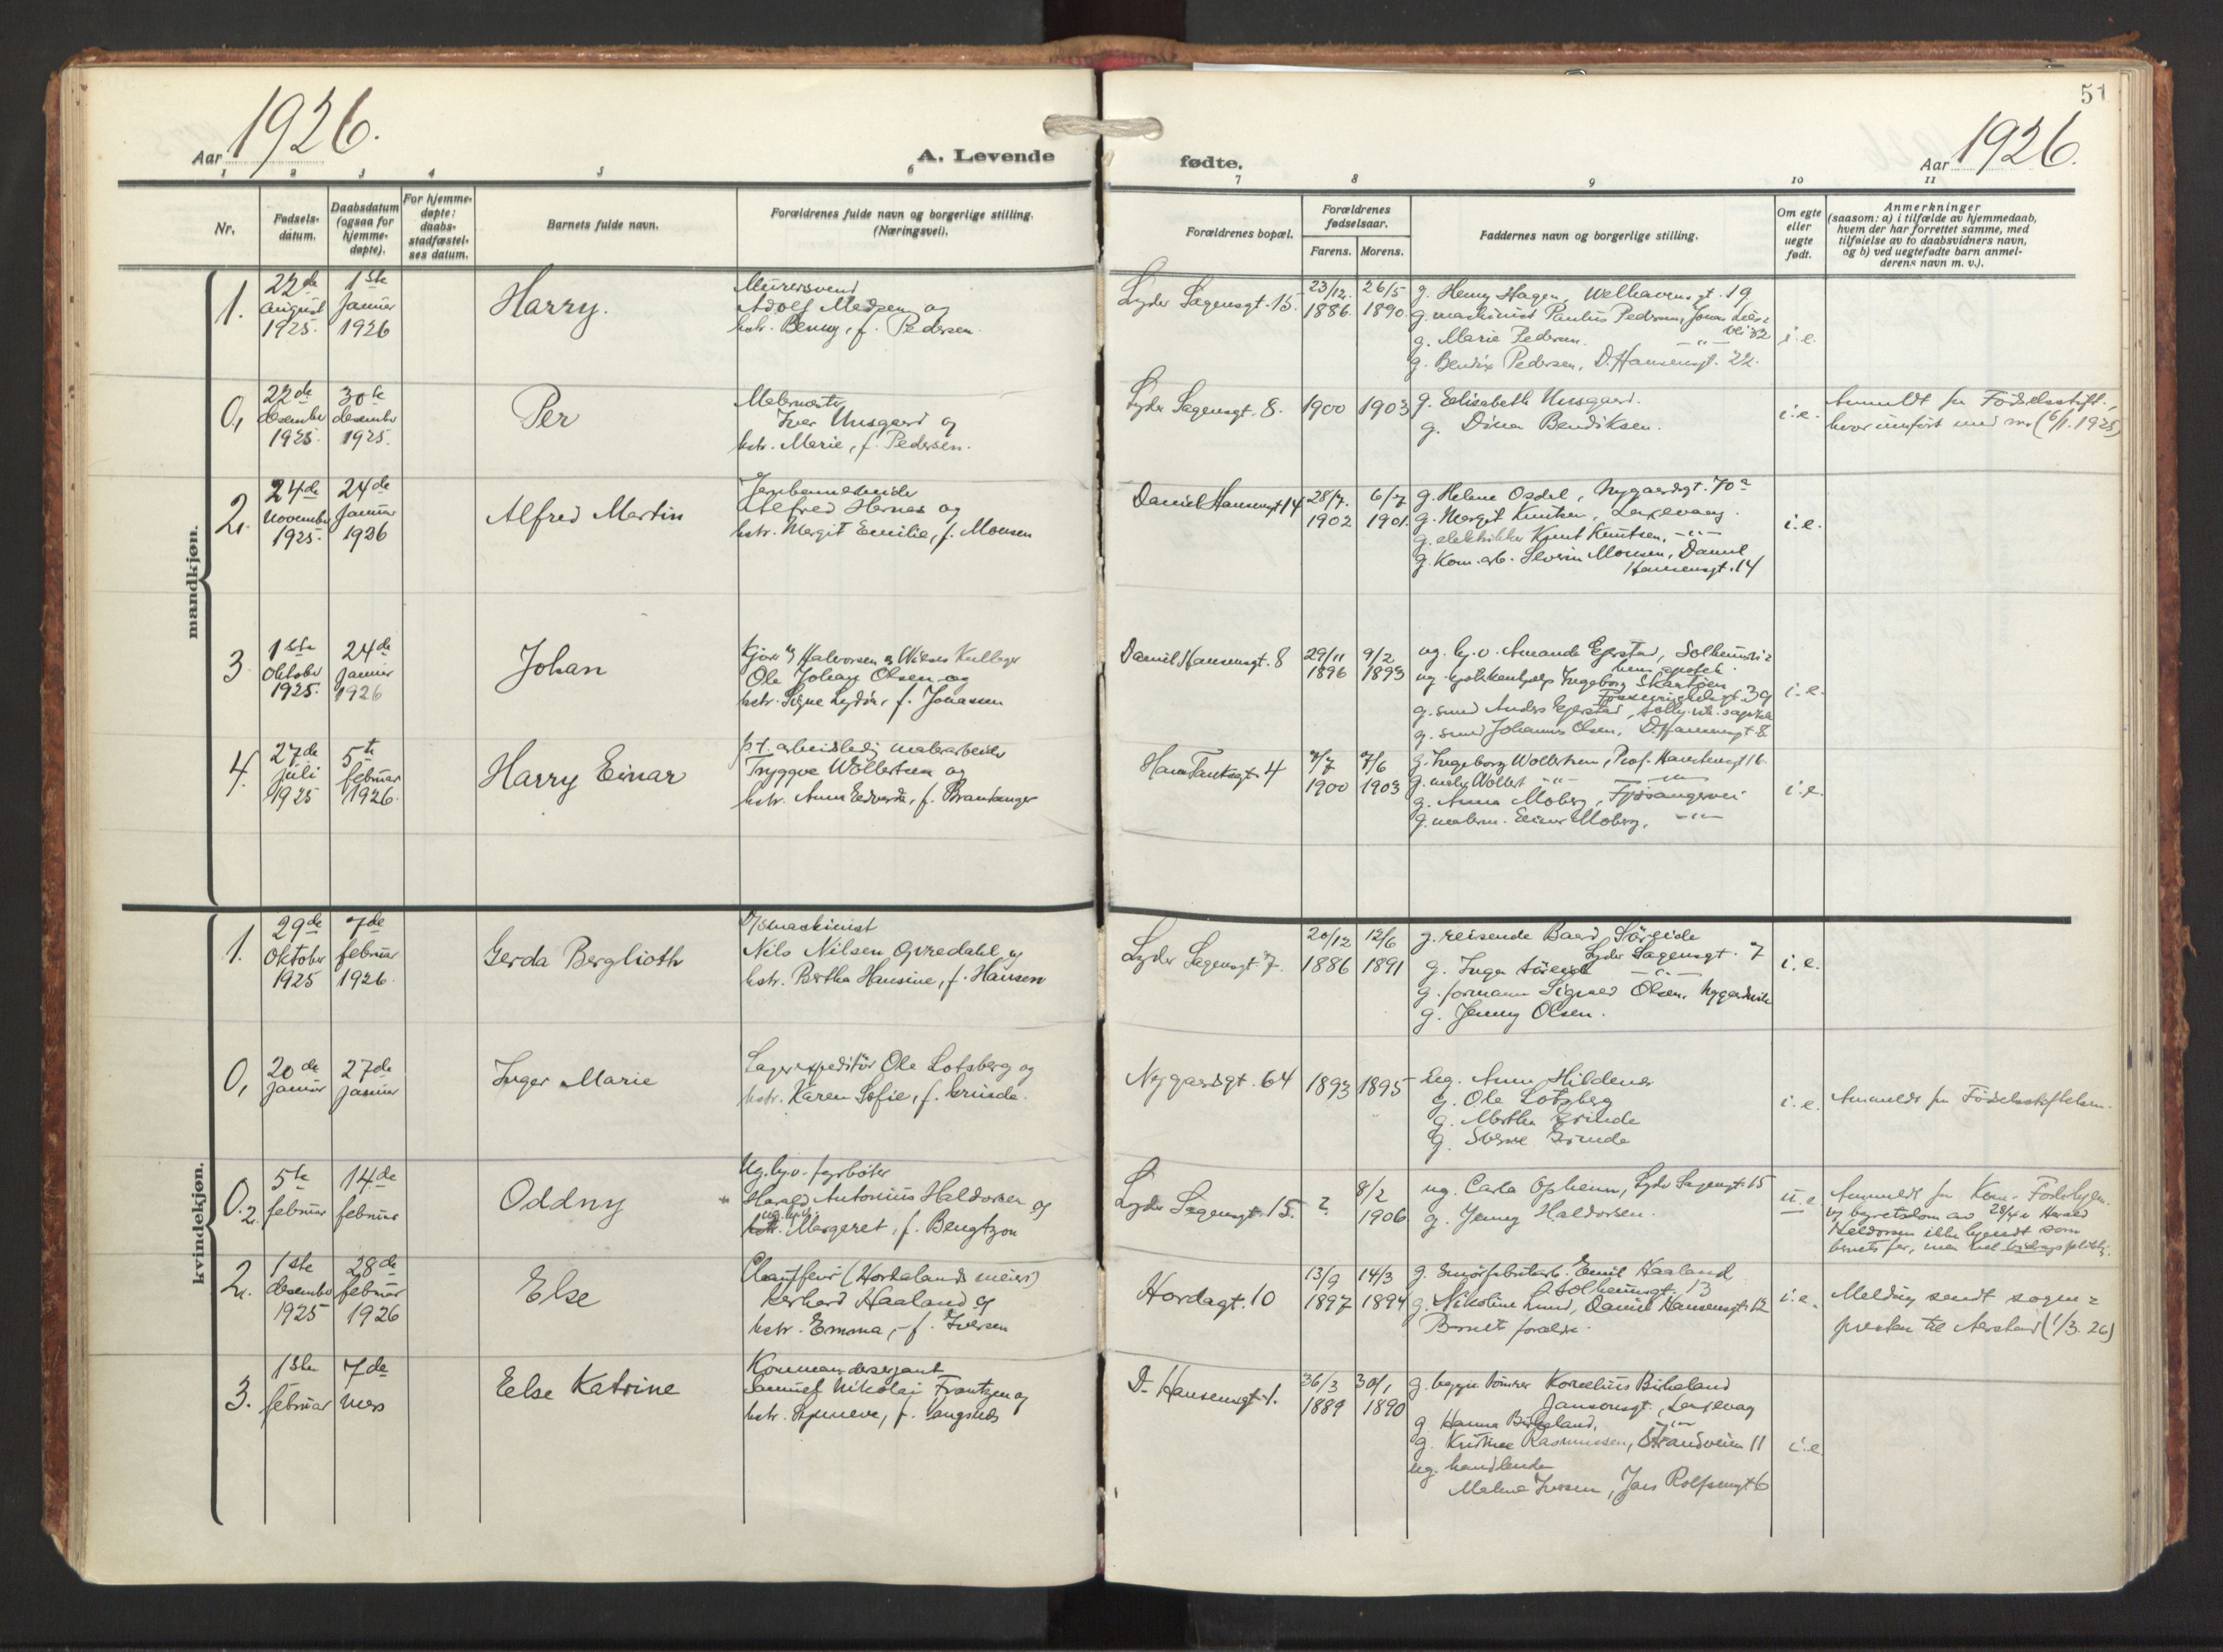 51
Aar 1926.
A. Levende
fødte.
Aar 1926.
1 2 3 4 5 6
7 8 9 10 11
Nr.
Fødsels-
datum.
Daabsdatum
(ogsaa for
hjemme-
døpte).
For hjemme-
døpte:
daabs-
stadfæstel-
ses datum.
Barnets fulde navn.
Forældrenes fulde navn og borgerlige stilling.
(Næringsvei).
Forældrenes bopæl.
Forældrenes
fødselsaar.
Farens. Morens.
Faddernes navn og borgerlige stilling.
Om egte
eller
uegte
født.
Anmerkninger
(saasom: a) i tilfælde av hjemmedaab,
hvem der har forrettet samme, med
tilføielse av to daabsvidners navn,
og b) ved uegtefødte barn anmel-
derens navn m. v.).
mandkjøn.
1.
22de
august
1925.
1ste
januar
1926
Harry.
Murersvend
Adolf Madsen og
hstr. Benny, f. Pedersen.
Lyder Sagensgt. 15.
23/12.
1886.
26/5
1890.
g. Henny Hagen, Welhavensgt. 19
g. maskinist Paulus Pedersen, Jonas Lies
vei 32
g. Marie Pedersen. -"-
g. Bendix Pedersen, D. Hansensgt. 22.
i. e.
0,
22de
desember
1925.
30te
desember
1925.
Per
Malermester
Iver Unsgaard og
hstr. Marie, f. Pedersen.
Lyder Sagensgt. 8.
1900
1903
g. Elisabeth Unsgaard.
g. Dina Bendiksen.
i. e.
Anmeldt fra Fødselsstift.,
hvor innført med nr. (6/1. 1925)
2.
24de
november
1925.
24de
januar
1926
Alfred Martin
Jernbanearbeider
Alfred Hernes og
hstr. Margit Emilie, f. Monsen
Daniel Hansensgt 14
28/7.
1902
6/7
1901.
g. Helene Opdal, Nygaardsgt. 70a
g. Margit Knutsen, Laksevaag.
g. elektriker Knut Knutsen, -"-
g. Kom. arb. Severin Monsen, Daniel
Hansensgt. 14
i. e.
3.
1ste
Oktober
1925.
24de
januar
1926
Johan
Ole Johan Olsen og
hstr. Signe Lydia, f. Johassen
Daniel Hansensgt. 8
29/11
1896
9/2
1893
ug. hj. v. Amanda Ejerstad, Solheimsvi
ug. kjøkkenhjelp Ingeborg Skartsen
g. smed Anders Ejerstad,
g. smed Johannes Olsen, D. Hansensgt 8
i. e.
4.
27de
juli
1925
5te
februar
1926.
Harry Einar
p.t. arbeidsledig malerarbeider
Tryggve Wollertsen og
hstr. Anna Edvarda, f. Brandanger
Hans Tanksgt. 4
7/7
1900
7/6
1903
g. Ingeborg Wollertsen, Prof. Hansteensgt 16.
g. maler Wollert -"- -"-
g. Anna Moberg, Fjøsangervei
g. malerm. Einar Moberg, -"-
i. e.
kvindekjøn.
1.
29de
Oktober
1925
7de
februar
1926.
Gerda Berglioth
D/S maskinist
Nils Nilsen Øvredahl og
hstr. Bertha Hansine, f. Hansen
Lyder Sagensgt. 7.
20/12
1886
12/6
1891
g. reisende Baard Søreide
Lyder Sagensgt. 7
g. Inga Søreide -"-
g. formann Sigvald Olsen, Nygaardsvik
g. Jenny Olsen.
i. e.
0,
20de
januar
27de
januar
Inger Marie
Lagerexpeditør Ole Lotsberg og
hstr. Karen Sofie, f. Grinde.
Nygaardsgt. 64
1893
1895
Ug. Anna Hildener
g. Ole Lotsberg
g. Martha Grinde
g. Sverre Grinde
i. e.
Anmeldt fra Fødselsstiftelsen.
0.2.
5te
februar
14de
februar
Oddny
Ug. hj. v. fyrbøter
Harald Antonius Haldorsen og
ug. hj. v.
hstr. Margaret, f. Bengtzon
Lyder Sagensgt. 15.
?
8/2
1906
ug. Carla Opheim, Lyder Sagensgt. 15
g. Jenny Haldorsen.
u. e.
Anmeldt fra Kom. Fødehjem.
og byretsdom av 28/4 er Harald
Haldorsen ikke kjendt som
barnets far, men bel bidragspliktig.
2.
1ste
desember
1925
28de
februar
1926
Else
Chauffeur (Hordalands meieri)
Gerhard Haaland og
hstr. Emma, f. Iversen
Hordagt. 10
13/9
1897
14/3
1894
g. smørfabrikarb. Emil Haaland,
Solheimsgt. 13
g. Nikoline Lund, Daniel Hansensgt. 12
Barnets forældre.
i. e.
Melding sendt sogne-
presten til Aarstad (1/3. 26)
3.
1ste
februar
7de
mars
Else Katrine
Kommandersergant
Samuel Nikolai Frantzen og
hstr. Synneve, f. Langsæd
D. Hansensgt. 1.
26/3
1889
30/1
1890
g. bygn. tømmer Kornelius Birkeland
Jansonsgt., Laksevag
g. Hanna Birkeland, -"-
g. Kristine Rasmussen, Strandveien 11
ug. handlende
Malene Iversen, Jans Rolfsensgt 6
i. e.